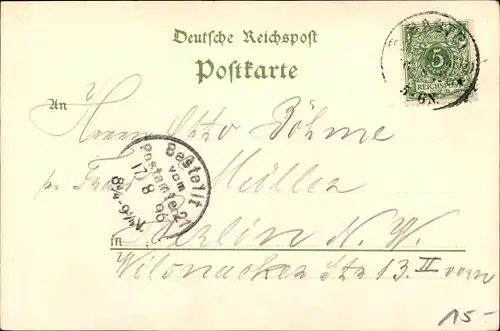 Deutsche Reichspost
Postkarte
5
REICHSPOST
An
Herrn Otto Böhme
pr Frau Müller
Bestellt
vom
Postamte 21
17 8 96
8¼-9¼ V
in Berlin N. W.
Wilsnacker Str 13. II vorn
15-